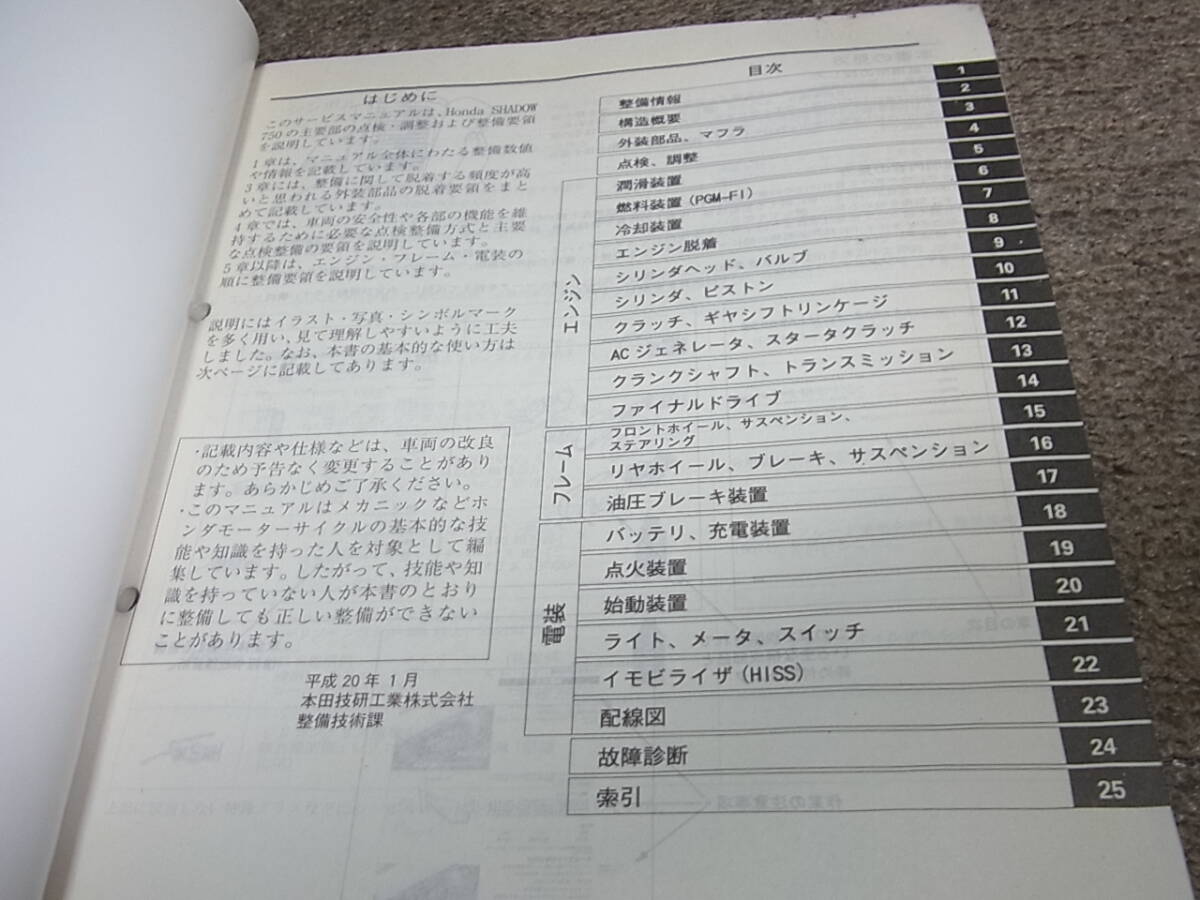 はじめに
このサービスマニュアルは、Honda SHADOW
750の主要部の点検・調整および整備要領
を説明しています。
1章は、マニュアル全体にわたる整備数値
や情報を記載しています。
3章には、整備に関して脱着する頻度が高
いと思われる外装部品の脱着要領をまと
めて記載しています。
4章では、車両の安全性や各部の機能を維
持するために必要な点検整備方式と主要
な点検整備の要領を説明しています。
5章以降は、エンジン・フレーム・電装の
順に整備要領を説明しています。
説明にはイラスト・写真・シンボルマーク
を多く用い、見て理解しやすいように工夫
しました。なお、本書の基本的な使い方は
次ページに記載してあります。
・記載内容や仕様などは、車両の改良
のため予告なく変更することがあり
ます。あらかじめご了承ください。
・このマニュアルはメカニックなどホ
ンダモーターサイクルの基本的な技
能や知識を持った人を対象として編
集しています。したがって、技能や知
識を持っていない人が本書のとおり
に整備しても正しい整備ができない
ことがあります。
平成20年1月
本田技研工業株式会社
整備技術課
目次
整備情報 1
構造概要 2
外装部品、マフラ 3
点検、調整 4
エンジン
潤滑装置 5
燃料装置(PGM-FI) 6
冷却装置 7
エンジン脱着 8
シリンダヘッド、バルブ 9
シリンダ、ピストン 10
クラッチ、ギヤシフトリンケージ 11
ACジェネレータ、スタータクラッチ 12
クランクシャフト、トランスミッション 13
ファイナルドライブ 14
フレーム
フロントホイール、サスペンション、
ステアリング 15
リヤホイール、ブレーキ、サスペンション 16
油圧ブレーキ装置 17
電装
バッテリ、充電装置 18
点火装置 19
始動装置 20
ライト、メータ、スイッチ 21
イモビライザ(HISS) 22
配線図 23
故障診断 24
索引 25